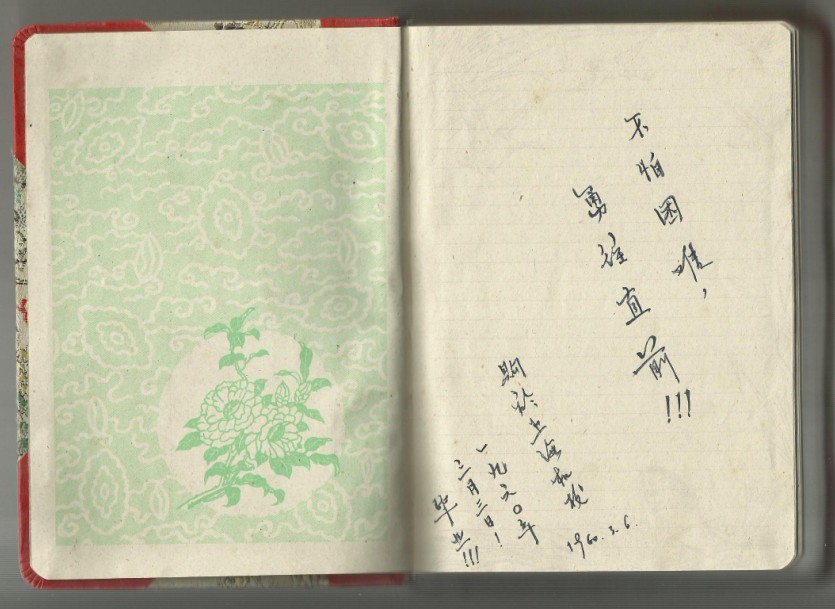 不怕困难,
勇往直前!!!
购於上海机校
1960.3.6.
一九六〇年
三月三日!
毕业!!!